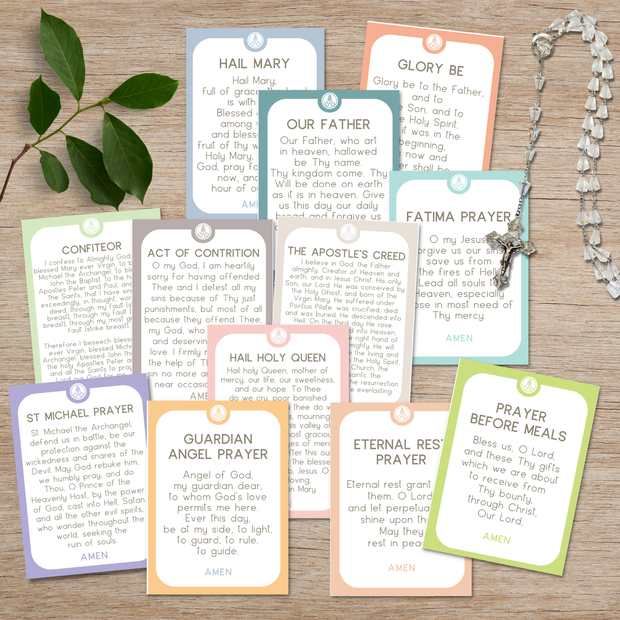 HAIL MARY
Hail Mary,
full of grace, the Lord
is with
Blessed
among
and bles
fruit of thy w
Holy Mary,
God, pray f
now, an
hour of o
GLORY BE
Glory be to the Father,
and to
Son, and to
the Holy Spirit,
it was in the
beginning,
now and
er shall be
OUR FATHER
Our Father, who art
in heaven, hallowed
be Thy name.
Thy kingdom come. Thy
Will be done on earth
as it is in heaven. Give
us this day our daily
bread and forgive us
FATIMA PRAYER
O my Jesus
forgive us our
save us from
the fires of Hell
Lead all souls
Heaven, especially
those in most need of
Thy mercy.
AMEN
CONFITEOR
I confess to Almighty God,
blessed Mary ever Virgin, to b
Michael the Archangel, to bless
John the Baptist, to the ho
Apostles Peter and Paul, an
the Saints, that I have sin
exceedingly, in thought, wor
deed, through my fault (s
breast), through my fault (
breast), through my most g
fault (strike breast).
Therefore I beseech bless
ever Virgin, blessed Micha
Archangel, blessed John th
the holy Apostles Peter a
and all the Saints to pray
ACT OF CONTRITION
O my God, I am heartily
sorry for having offended
Thee and I detest all my
sins because of Thy just
punishments, but most of all
because they offend Thee,
my God, who
and deservin
love. I firmly r
the help of Th
sin no more
near occasio
THE APOSTLE'S CREED
I believe in God, the Father
almighty, Creator of Heaven and
earth, and in Jesus Christ, His only
Son, our Lord. He was conceived by
the Holy Ghost, and born of the
Virgin Mary. He suffered under
Pontius Pilate, was crucified, died
and was buried. He descended into
Hell. On the third day He rose
into Heaven,
right hand of
almighty. He will
the living and
the Holy Spirit,
Church, the
saints, the
the resurrection
everlasting.
HAIL HOLY QUEEN
Hail holy Queen, mother of
mercy, our life, our sweetness,
and our hope. To thee
do we cry, poor banished
ST MICHAEL PRAYER
St. Michael the Archangel,
defend us in battle, be our
protection against the
wickedness and snares of the
Devil. May God rebuke him,
we humbly pray, and do
Thou, O Prince of the
Heavenly Host, by the power
of God, cast into Hell, Satan
and all the other evil spirits,
who wander throughout the
world, seeking the
ruin of souls.
AMEN
GUARDIAN
ANGEL PRAYER
Angel of God,
my guardian dear,
to whom God's love
permits me here.
Ever this day,
be at my side, to light,
to guard, to rule,
to guide.
AMEN
ETERNAL REST
PRAYER
Eternal rest grant
them, O Lord
and let perpetual
shine upon th
May they
rest in peac
AMEN
PRAYER
BEFORE MEALS
Bless us, O Lord,
and these Thy gifts
which we are about
to receive from
Thy bounty,
through Christ,
Our Lord,
AMEN